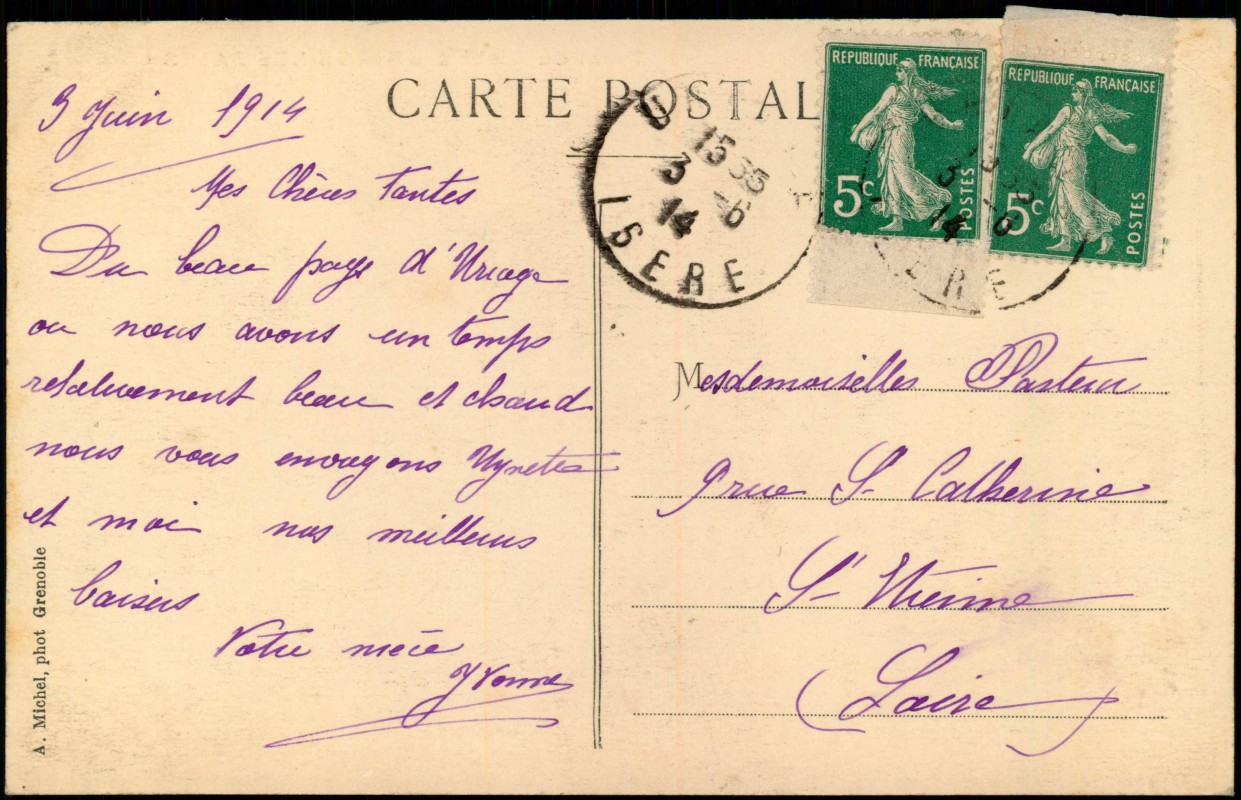 CARTE POSTALE
3 Juin 1914
Mes Chères Tantes
Du beau pays d'Uriage
ou nous avons un temps
relativement beau et chaud
nous vous envoyons
et moi nos meilleurs
baisers
Votre nièce
Yvonne
A. Michel, phot Grenoble
RÉPUBLIQUE FRANÇAISE
5c
POSTES
RÉPUBLIQUE FRANÇAISE
5c
POSTES
15 35
3 -6
14
ISERE
3 -6
14
ERE
Mesdemoiselles Pasteur
9 rue St Catherine
St Etienne
Loire